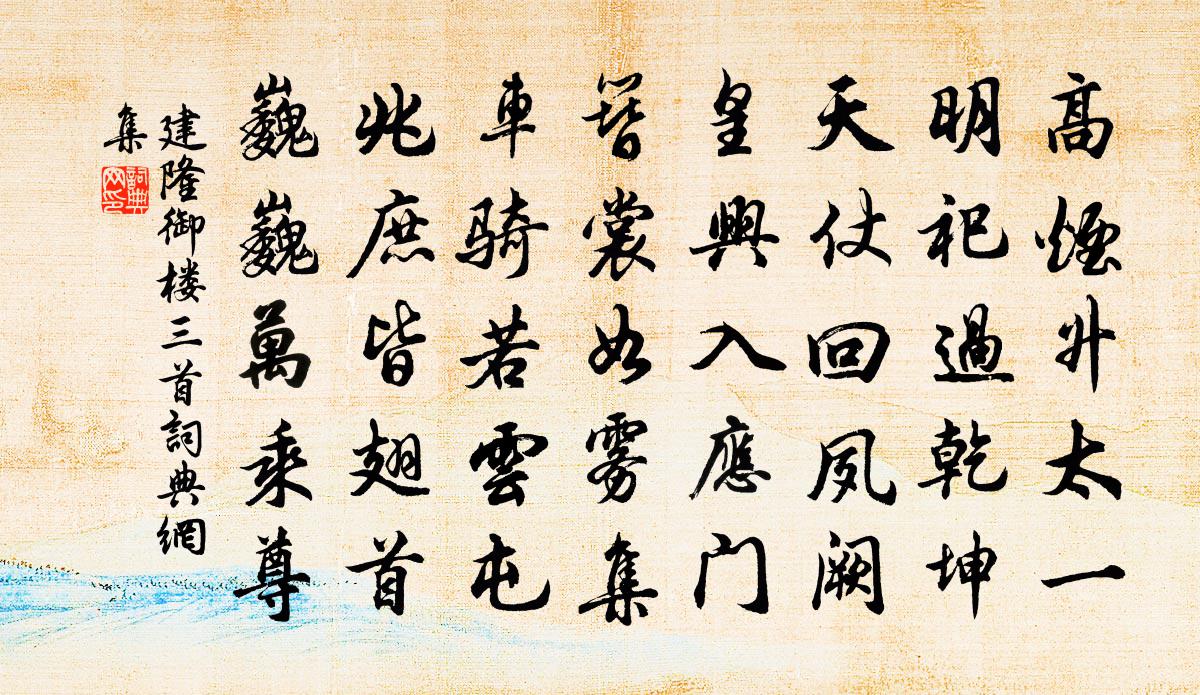 高煙升太一
明祀過乾坤
天仗回夙闕
皇興入應門
簪裳如雾集
車騎若雲屯
兆庶皆翅首
巍巍萬乘尊
建隆御楼三首詞典網
集
詞典
网印